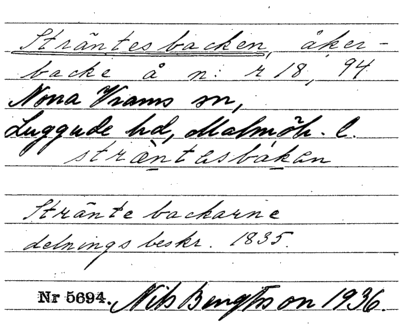 Sträntesbacken, åker-
backe å n: r 18, 94
Norra Vrams sn,
Luggude hd, Malmöh. l.
sträntasbakan
Stränte backarne
delnings beskr. 1835.
Nr 5694. Nils Bengtsson 1936.